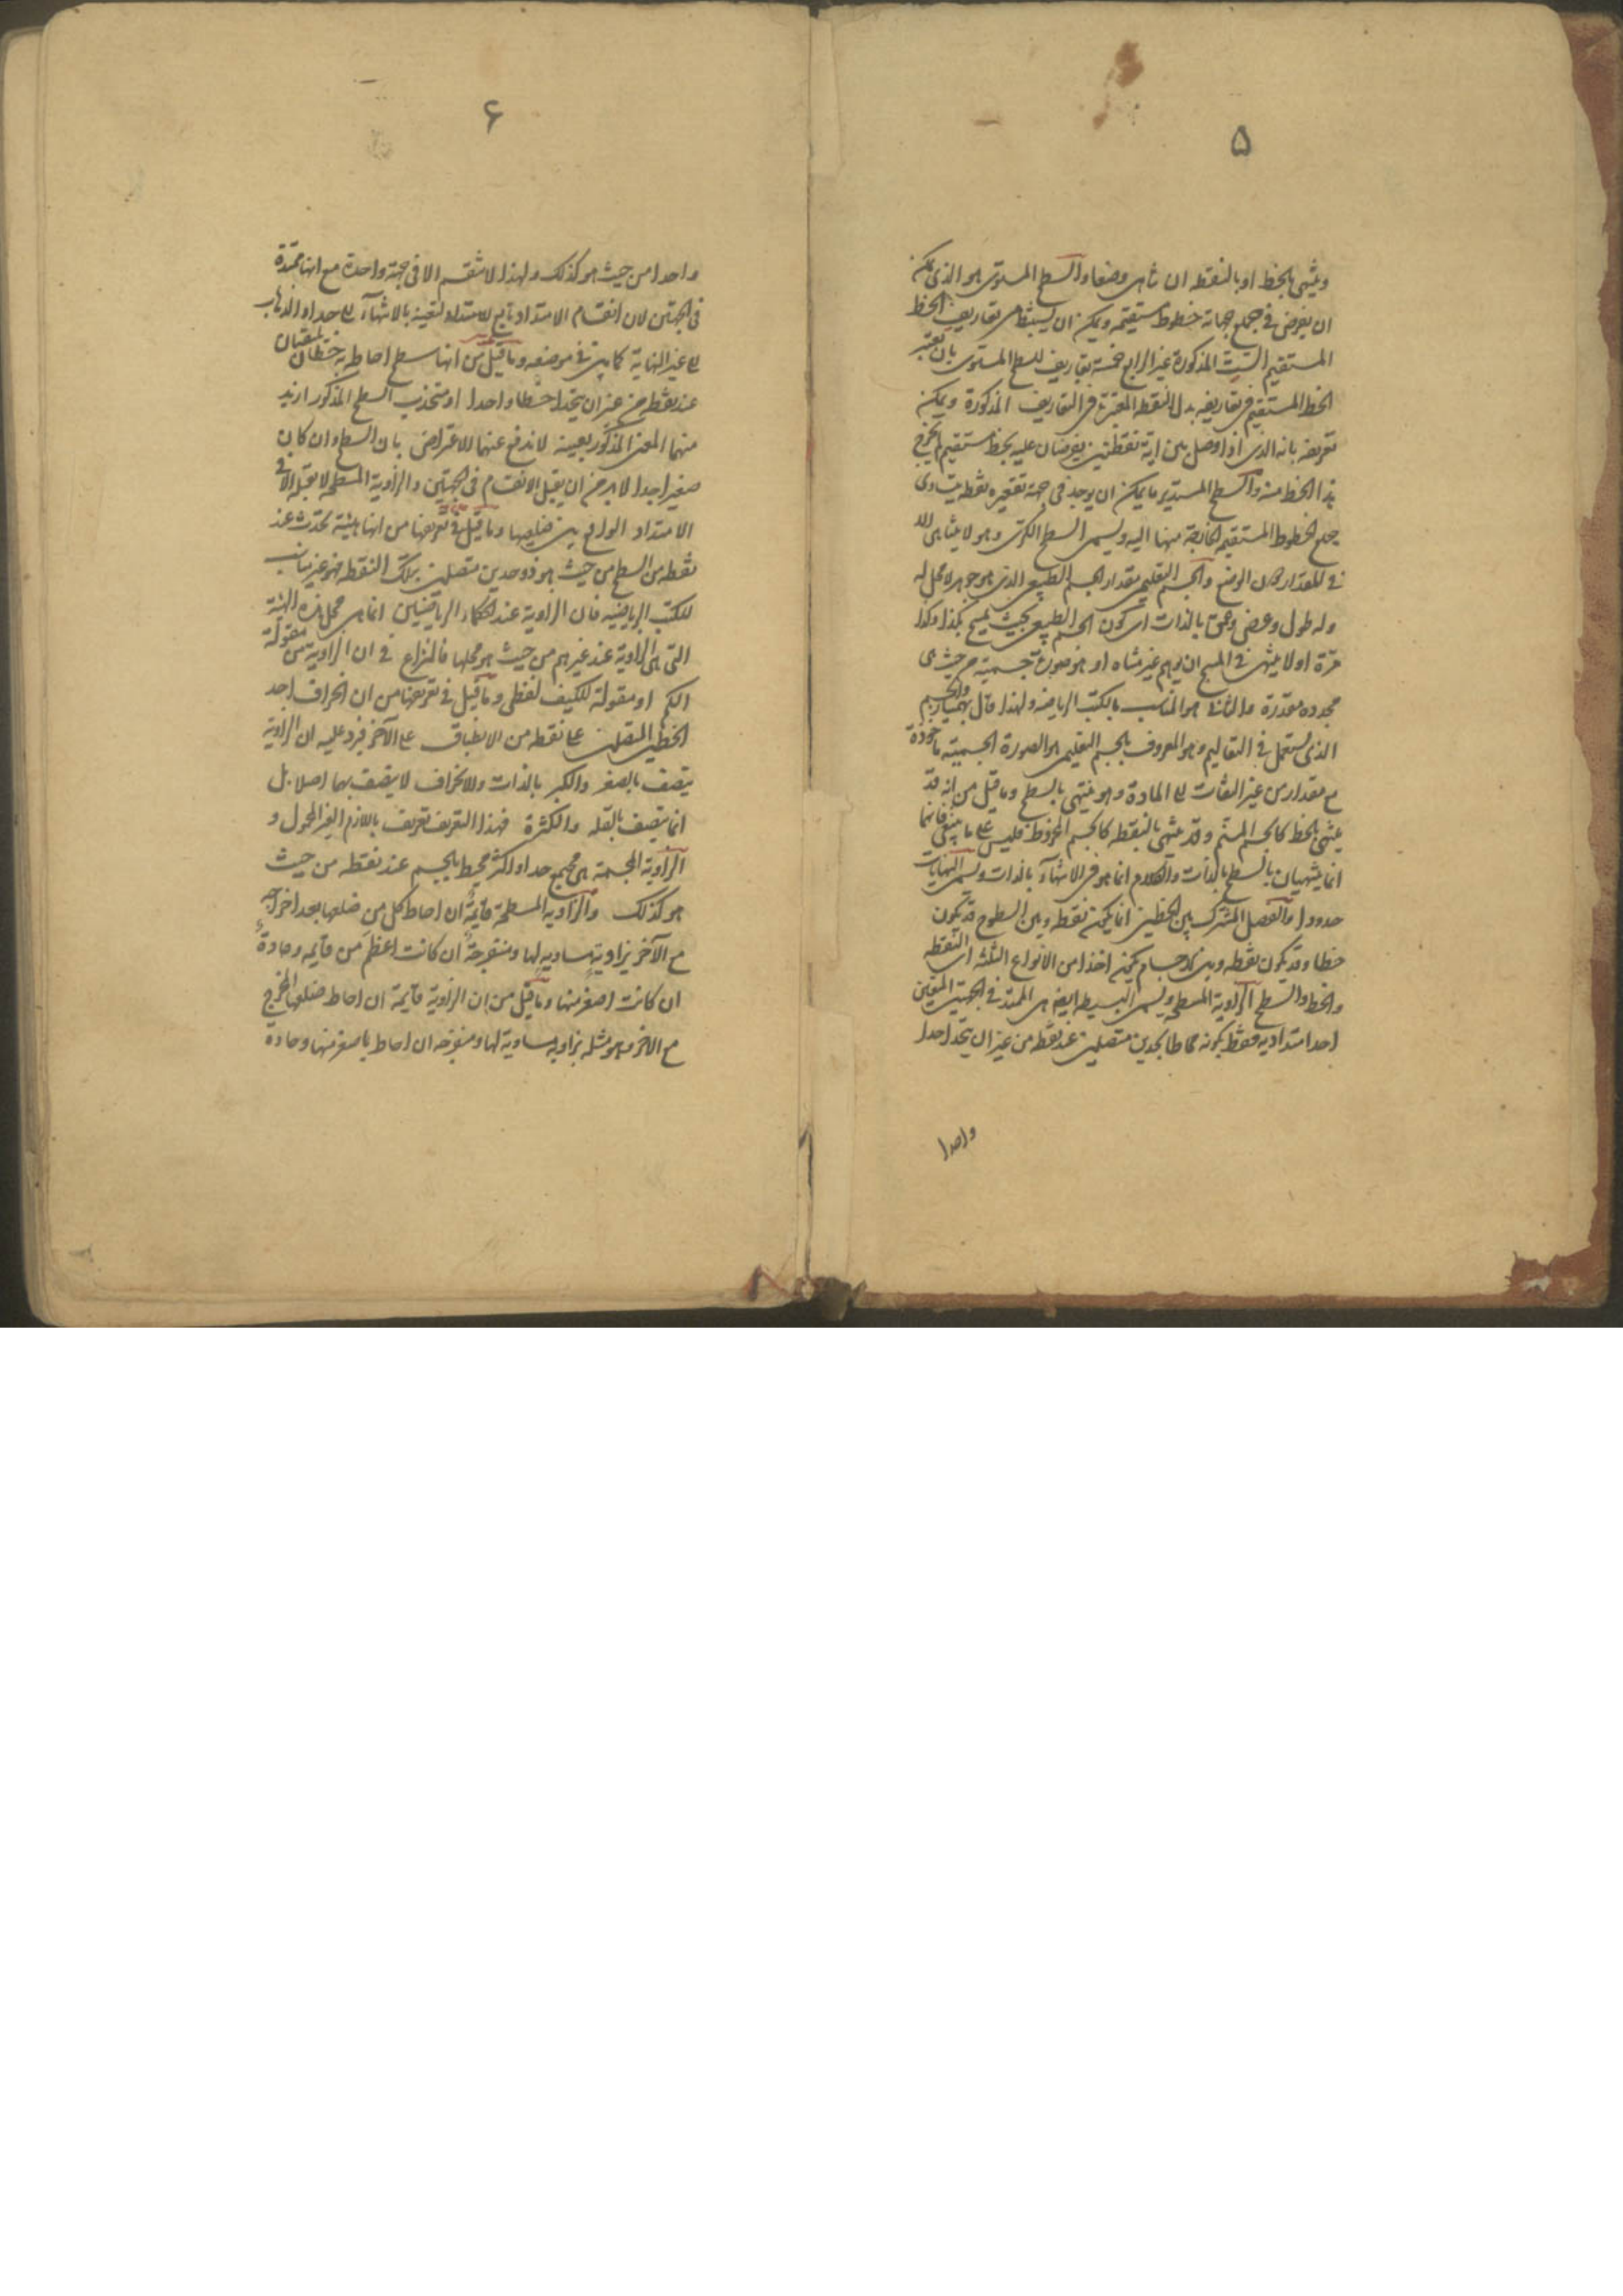 ۵
وينتهى بالخط او بالنقطه ان تناهى وضعا والسطح المستوى هو الذى يمكن
ان يفرض فى جميع جهاته خطوط مستقيمه ويمكن ان يستنبط من تعاريف الخط
المستقيم الست المذكورة غير الرابع خمسة تعاريف للسطح المستوى بان يعتبر
الخط المستقيم فى تعاريفه بدل النقطه المعتبرة فى التعاريف المذكورة ويمكن
تعريفه بانه الذى اذا وصل بين اية نقطتين يفرضان عليه بخط مستقيم لم يخرج
هذا الخط منه والسطح المستدير ما يمكن ان يوجد فى جهة تقعيره نقطه يتساوى
جميع الخطوط المستقيمه الخارجة منها اليه ويسمى السطح الكرى وهو لا يتناهى الا
فى المقدار دون الوضع والجسم التعليمى مقدار الجسم الطبيعى الذى هو جوهر لا محل له
وله طول وعرض وعمق بالذات اى كون الجسم الطبيعى بحيث يمسح بكذا وكذا
مرة او لا ينتهى فى المسح ان توهم غير متناه او هو صورة جسمية من حيث هى
مجرده مقدرة والثانى هو المناسب بالكتب الرياضه ولهذا قال بهمنيار والجسم
الذى يستعمل فى التعاليم وهو المعروف بالجسم التعليمى هو الصورة الجسميه ماخوذة
مع مقدار من غير التفات الى المادة وهو ينتهى بالسطح وما قيل من انه قد
ينتهى بالخط كالجسم المسنم وقد ينتهى بالنقطه كالجسم المخروط فليس على ما ينبغى فانهما
انما ينتهيان بالسطح بالذات والكلام انما هو فى الانتهاء بالذات ويسمى النهايات
حدودا والفصل المشترك بين الخطين انما يكون نقطه وبين السطوح قد يكون
خطا وقد يكون نقطه وبين الاجسام يمكن اخذا من الانواع الثلثه اى النقطه
والخط والسطح الزاوية المسطحه ويسمى البسيطه ايضا هى الممتد فى الجهتين المعينين
احد امتداديه فقط بكونه محاطا بحدين متصلين عند نقطه من غير ان يتحدا حدا
واحدا
۶
واحدا من حيث هو كذلك ولهذا لا تنقسم الا فى جهة واحدة مع انها ممتدة
فى الجهتين لان انقسام الامتداد تابع للامتداد لتعينه بالانتهاء الى حد او الذهاب
الى غير النهاية كما بين فى موضعه وما قيل من انها سطح احاط به خطان يلتقيان
عند نقطه من غير ان يتحدا خطا واحدا او متحدب السطح المذكور اريد
منهما المعنى المذكور بعينه لاندفع عنهما الاعتراض بان السطح وان كان
صغيرا جدا لا بد من ان يقبل الانقسام فى الجهتين والزاوية المسطحه لا يقبله الا فى
الامتداد الواقع بين ضلعيها وما قيل فى تعريفها من انها هيئة تحدث عند
نقطه من السطح من حيث هو ذو حدين متصلين بتلك النقطه فهو غير مناسب
للكتب الرياضيه فان الزاوية عند الحكماء الرياضيين انما هى محل هذه الهيئة
التى هى الزاوية عند غيرهم من حيث هو محلها فالنزاع فى ان الزاوية من مقولة
الكم او مقولة للكيف لفظى وما قيل فى تعريفها من ان انحراف احد
الخطين المتصلين على نقطه من الانطباق على الآخر فيرد عليه ان الزاوية
يتصف بالصغر والكبر بالذات والانحراف لا يتصف بهما اصلا بل
انما يتصف بالقله والكثرة فهذا التعريف تعريف باللازم الغير المحمول و
الزاوية المجسمة هى مجمع حد او اكثر محيط بالجسم عند نقطه من حيث
هو كذلك والزاويه المسطحة قائمة ان احاط كل من ضلعها بعد اخراجه
مع الآخر بزاوية مساويه لها ومنفرجة ان كانت اعظم من قايمه وحادة
ان كانت اصغر منها وما قيل من ان الزاوية قايمة ان احاط ضلعها المخرج
مع الاخر وهو مثله بزاويه مساوية لها ومنفرجه ان احاط باصغر منها وحاده